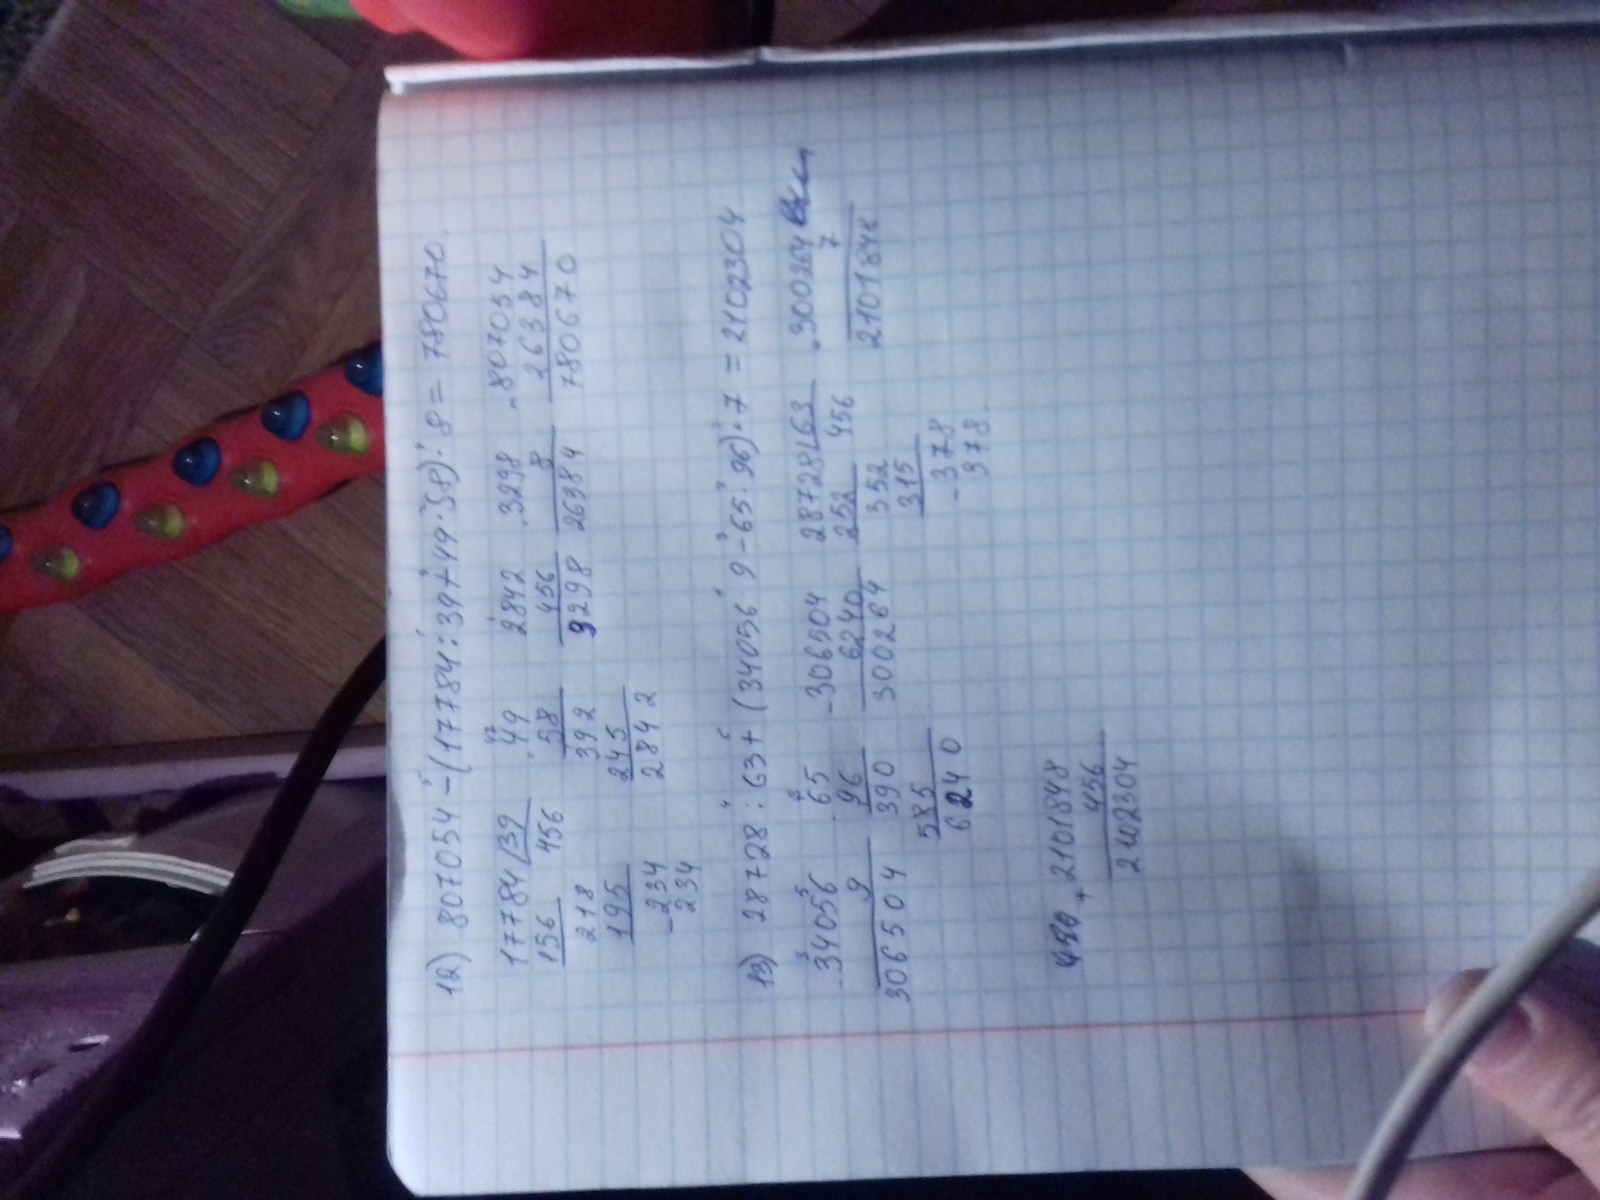 12) 807054-(17784:39+49·58)·8=780670.
17784 39 49 2842 3298 807054
156 456 58 456 8 26384
218 392 3298 26384 780670
195 245
-234 2842
234
13) 28728:63+(34056·9-65·96)·7=2102304
34056 65 -306504 28728 63 300264
9 96 6240 252 456 7
306504 390 300264 352 2101848
585 315
6240 -378
378
+ 2101848
456
2102304